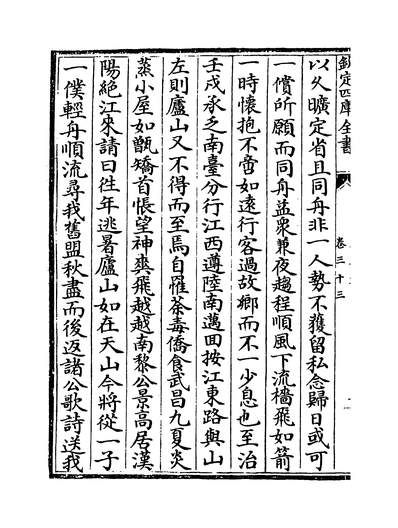 欽定四庫全書
卷三十三
以久曠定省且同舟非一人勢不獲留私念歸日或可
一償所願而同舟益衆兼夜趨程順風下流檣飛如箭
一時懷抱不啻如遠行客過故鄉而不一少息也至治
壬戌承乏南臺分行江西遵陸南邁回按江東路與山
左則廬山又不得而至焉自罹荼毒僑食武昌九夏炎
蒸小屋如甑矯首悵望神爽飛越越南黎公景高居漢
陽絶江來請曰徃年逃暑廬山如在天山今將從一子
一僕輕舟順流尋我舊盟秋盡而後返諸公歌詩送我